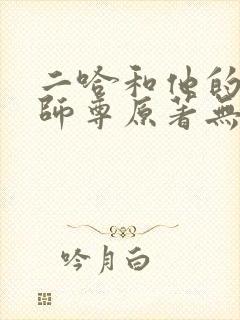 二哈和他的
師尊原著無
吟月白